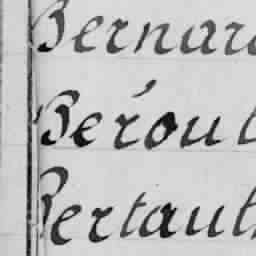 Bernard
Béroul
Bertault